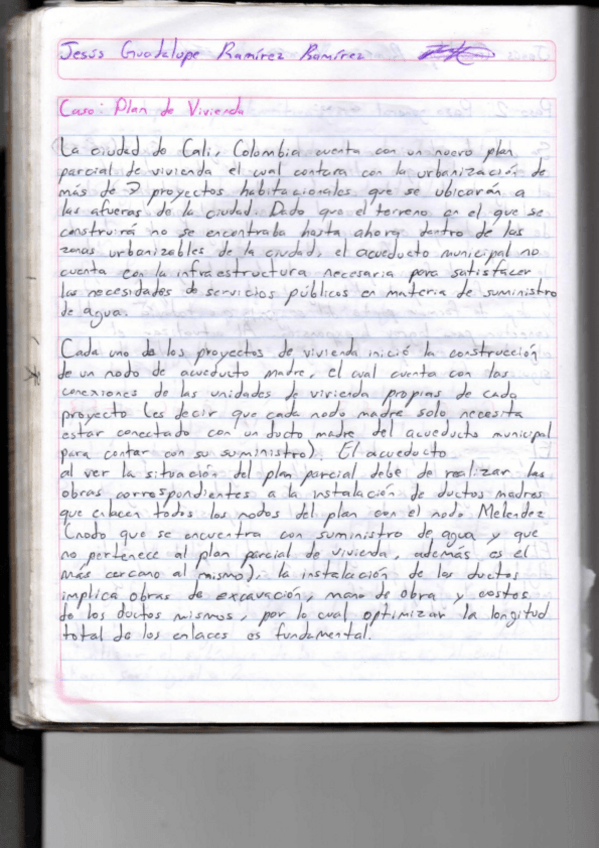 Jesús Guadalupe Ramírez Ramírez
Caso: Plan de Vivienda
La ciudad de Cali, Colombia cuenta con un nuevo plan
parcial de vivienda el cual contara con la urbanización de
más de 7 proyectos habitacionales que se ubicarán a
las afueras de la ciudad. Dado que el terreno en el que se
construirá no se encontraba hasta ahora dentro de las
zonas urbanizables de la ciudad, el acueducto municipal no
cuenta con la infraestructura necesaria para satisfacer
las necesidades de servicios públicos en materia de suministro
de agua.
Cada uno de los proyectos de vivienda inició la construcción
de un nodo de acueducto madre, el cual cuenta con las
conexiones de las unidades de vivienda propias de cada
proyecto (es decir que cada nodo madre solo necesita
estar conectado con un ducto madre del acueducto municipal
para contar con su suministro). El acueducto
al ver la situación del plan parcial debe de realizar las
obras correspondientes a la instalación de ductos madres
que enlacen todos los nodos del plan con el nodo Melendez
(nodo que se encuentra con suministro de agua y que
no pertenece al plan parcial de vivienda, además es el
más cercano al mismo). la instalación de los ductos
implica obras de excavación, mano de obra y costos
de los ductos mismos, por lo cual optimizar la longitud
total de los enlaces es fundamental.